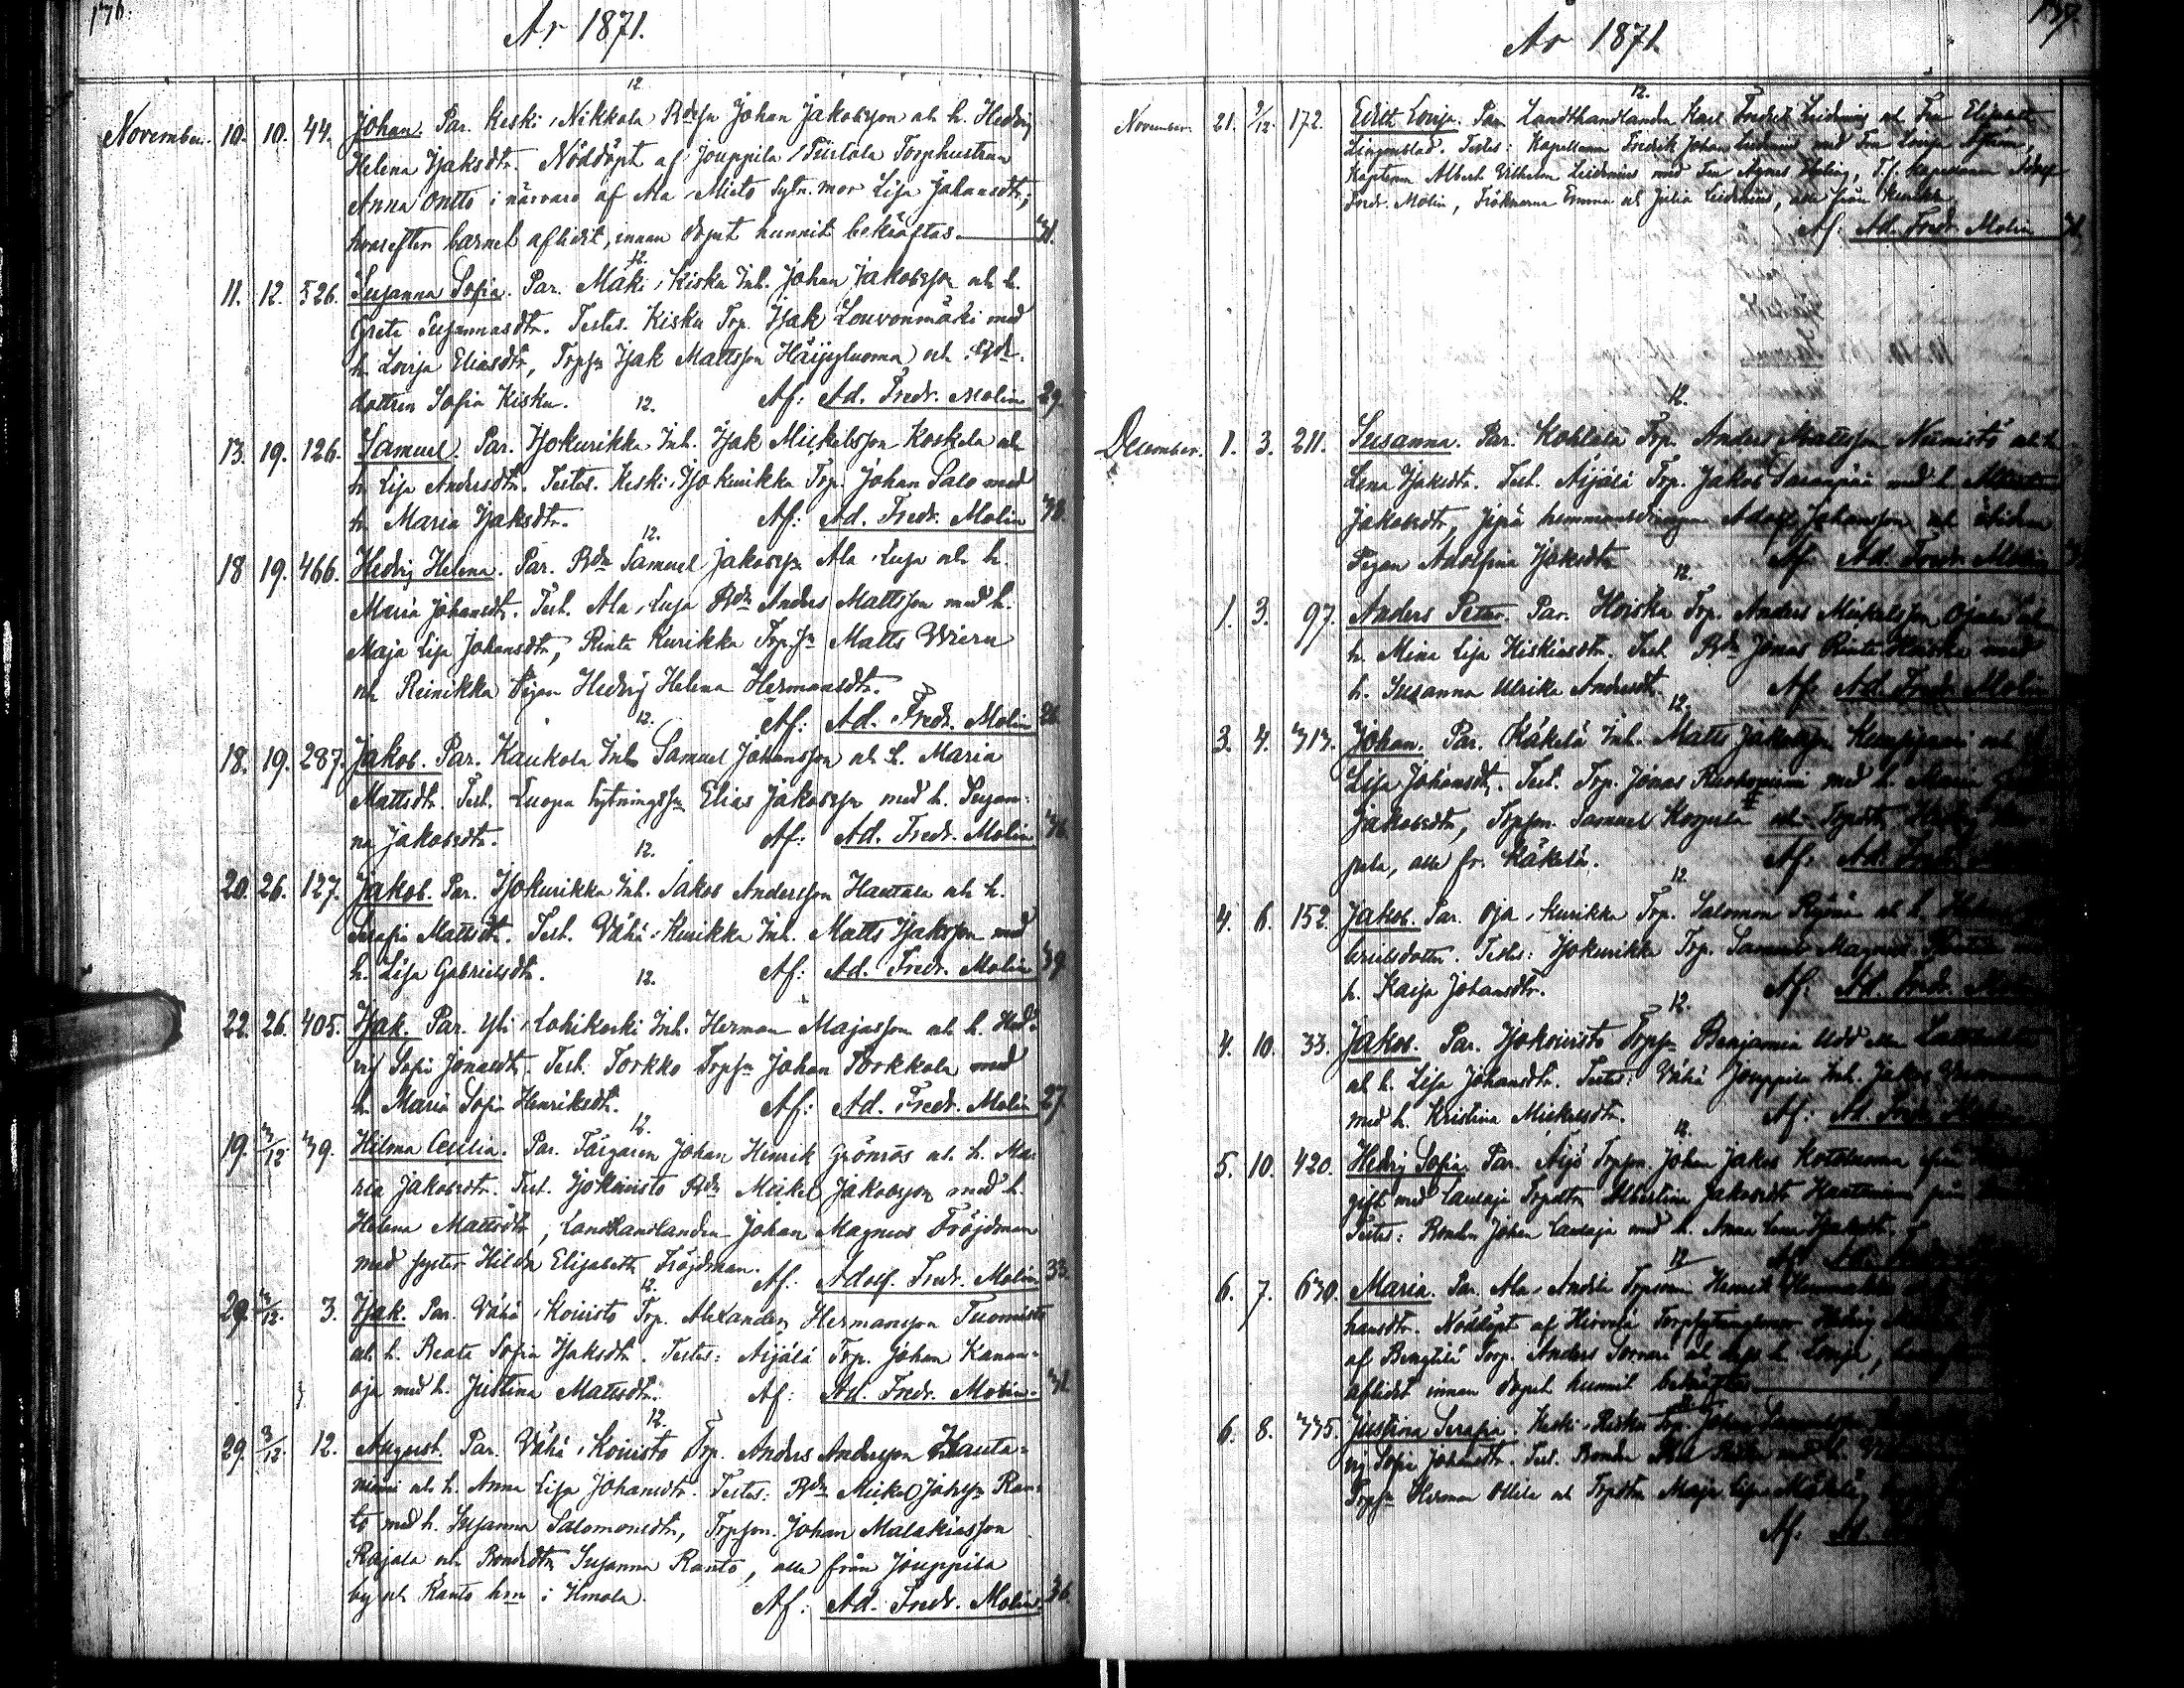 176.
År 1871.
12.
November. 10. 10. 44. Johan. Par. Keski-Nikkola Bdesn Johan Jakobsson och h. Hedvig
Helena Isaksdtr. Nöddöpt af Jouppila Tiistola Torphustrun
Anna Ontto i närvaro af Ala Mieto Sytn. mor Lisa Johansdtr,
hvarefter barnet aflidit, innan dopet hunnit bekräftas. 31.
12.
11. 12. 526. Susanna Sofia. Par. Mäki-Kiska Inh. Johan Jakobsson och h.
Greta Susannasdtr. Testes. Kiska Trp. Isak Louvonmäki med
h. Lovisa Eliasdtr, Trpsn Isak Mattsson och Bde-
dottren Sofia Kiska. Af: Ad. Fredr. Molin 29.
12.
13. 19. 126. Samuel. Par. Isokurikka Inh. Isak Mickelsson Koskela och
h. Lisa Andersdtr. Testes. Keski-Isokurikka Trp. Johan Palo med
h. Maria Isaksdtr. Af: Ad. Fredr. Molin 38.
12.
18 19. 466. Hedvig Helena. Par. Bdn Samuel Jakobsson Ala-Luja och h.
Maria Johansdtr. Test. Ala-Luja Bdn Anders Mattsson med h.
Maja Lisa Johansdtr, Rinta Kurikka Trpsn Matts Wieru
och Reinikka Pigan Hedvig Helena Hermansdtr.
Af: Ad. Fredr. Molin 26.
12.
18. 19. 287. Jakob. Par. Kaukola Inh. Samuel Johansson och h. Maria
Mattsdtr. Test. Luopa Sytningssn Elias Jakobsson med h. Susan-
na Jakobsdtr. Af: Ad. Fredr. Molin 36.
12.
20. 26. 127. Jakob. Par. Isokurikka Inh. Jakob Andersson Hautala och h.
Serafia Mattsdtr. Test. Vähä-Kurikka Inh. Matts Isaksson med
h. Lisa Gabrielsdtr. Af: Ad. Fredr. Molin 39.
12.
22. 26. 405. Isak. Par. Yli-Lohikoski Inh. Herman Majasson och h. Hed-
vig Sofia Jonasdtr. Test. Torkko Trpsn Johan Torkkola med
h. Maria Sofia Henriksdtr. Af: Ad. Fredr. Molin 27.
12.
19. 3/12. 39. Hilma Cecilia. Par. Färgaren Johan Henrik Grönroos och h. Ma-
ria Jakobsdtr. Test. Isokoivisto Bdn Mickel Jakobsson med h.
Helena Mattsdtr, Landthandlanden Johan Magnus Fröjdman
med syster Hilda Elisabeth Fröjdman. Af: Adolf. Fredr. Molin 33.
12.
29. 3/12. 3. Isak. Par. Vähä-Koivisto Trp. Alexander Hermansson Tuomisto
och h. Beata Sofia Isaksdtr. Testes: Äijälä Trp. Johan Kanan-
oja med h. Justina Mattsdtr. Af: Ad. Fredr. Molin. 31.
12.
29. 3/12. 12. August. Par. Vähä-Koivisto Trp. Anders Andersson Hauta-
niemi och h. Anna Lisa Johansdtr. Testes: Bdn Mickel Johsson Ran-
to med h. Susanna Salomonsdtr, Trpson Johan Malakiasson
Rajala och Bondedtr Susanna Ranto, alla från Jouppila
by och Ranto hmn i Ilmola. Af: Ad. Fredr. Molin. 36.
År 1871.
12.
November. 21. 9/12. 172. Edith Lovisa. Par. Landthandlanden Karl Fredrik Lidenius och Fru Elisabeth
Lingonblad. Testes: Kapellanen Fredrik Johan Lidenius med Fru Lovisa Aström,
Kaptenen Albert Wilhelm Lidenius med Fru Agnes, T.f. Kapellanen Adolf
Fredr. Molin, Fröknarna Emma och Julia Lidenius, alla från Kurikka
Af: Ad. Fredr. Molin
12.
December. 1. 3. 211. Susanna. Par. Kohtala Trp. Anders Mattsson Niemistö och h.
Lena Isaksdtr. Test. Äijälä Trp. Jakob med h.
Jakobsdtr, Jyrä hemmansdrängen Adolf Johansson och
Pigan Adolfina Isaksdtr Af: Ad. Fredr. Molin
12.
1. 3. 97. Anders Peter. Par. Hoiska Trp. Anders Mickelsson och
h. Mina Lisa Kiskiasdtr. Test. Bdn Jonas Rinta-Hoiska med
h. Susanna Ulrika Andersdtr. Af: Ad. Fredr. Molin
12.
3. 4. 313. Johan. Par. Käkelä Inh. Matts Jakobsson Kamppinen och
Lisa Johansdtr. Test. Trp. Jonas med h. Maria
Jakobsdtr, Trpson. Samuel Koppela och Trpdtr
pela, alla fr. Käkelä. Af: Ad. Fredr.
12.
4. 6. 152. Jakob. Par. Oja-Kurikka Trp. Salomon och h.
brielsdotter. Testes: Isokurikka Trp. Samuel Magnus
h. Kaisa Johansdtr. Af: Ad. Fredr. Molin
12.
4. 10. 33. Jakob. Par. Isokoivisto Trpsn Benjamin
och h. Lisa Johansdtr. Testes: Vähä Jouppila Inh. Jakob
med h. Kristina Mickelsdtr. Af: Ad. Fredr. Molin
12.
5. 10. 420. Hedvig Sofia. Par. Äijö Trpson. Johan Jakob Kotoluoma
gift med Laulaja Trpdtr Albertina Jakobsdtr Hautaniemi från
Testes: Bonden Johan Laulaja med h. Anna Lena Isaksdtr.
12 Af: Ad. Fredr.
6. 7. 630. Maria. Par. Ala-Andila Trpson Henrik
hansdtr. Nöddöpt af Hirvelä Hedvig
af Bengtilä Torp. Anders Sorvari och dess h. Lovisa,
aflidit innan dopet hunnit bekräftas
6. 8. 335. Justina Serafia. Keski-Piska Trp. Johan
vig Sofia Johansdtr. Test. Bonden med h.
Trpsn Herman Ollila och Trpdtr Maja Lisa Mäkelä,
Af: Ad.